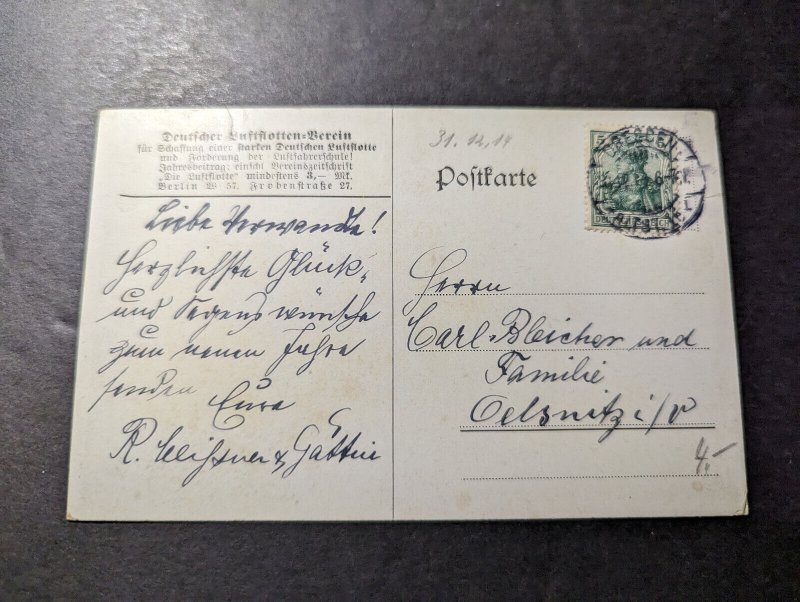 Deutscher Luftflotten-Verein
für Schaffung einer starken Deutschen Luftflotte
und Förderung der Luftfahrerschule!
Jahresbeitrag einschl. Vereinszeitschrift
„Die Luftflotte" mindestens 3,— Mk.
Berlin W 57, Frobenstraße 27.
Liebe Verwandte!
Herzlichste Glück-
und Segenswünsche
zum neuen Jahre
senden Eure
R. Meißner & Gattin
31.12.14
Postkarte
DRESDEN
Herrn
Carl Bleicher und
Familie
Oelsnitz i/V
4,-